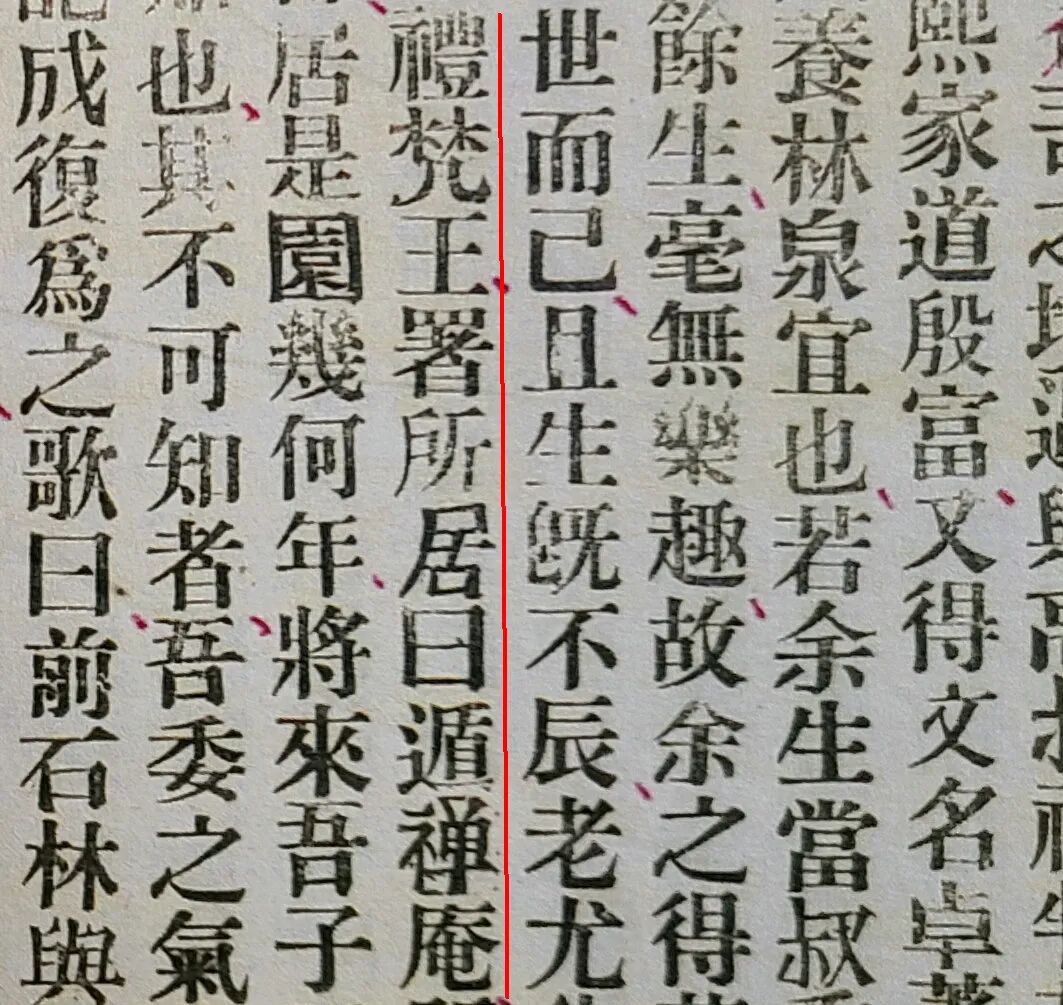 熙家道殷富又得文名卓
養林泉宜也若余生當叔
餘生毫無樂趣故余之得
世而己且生既不辰老尤
禮梵王署所居曰遁禅庵
居是園幾何年將來吾子
也其不可知者吾委之氣
成復爲之歌曰前石林與